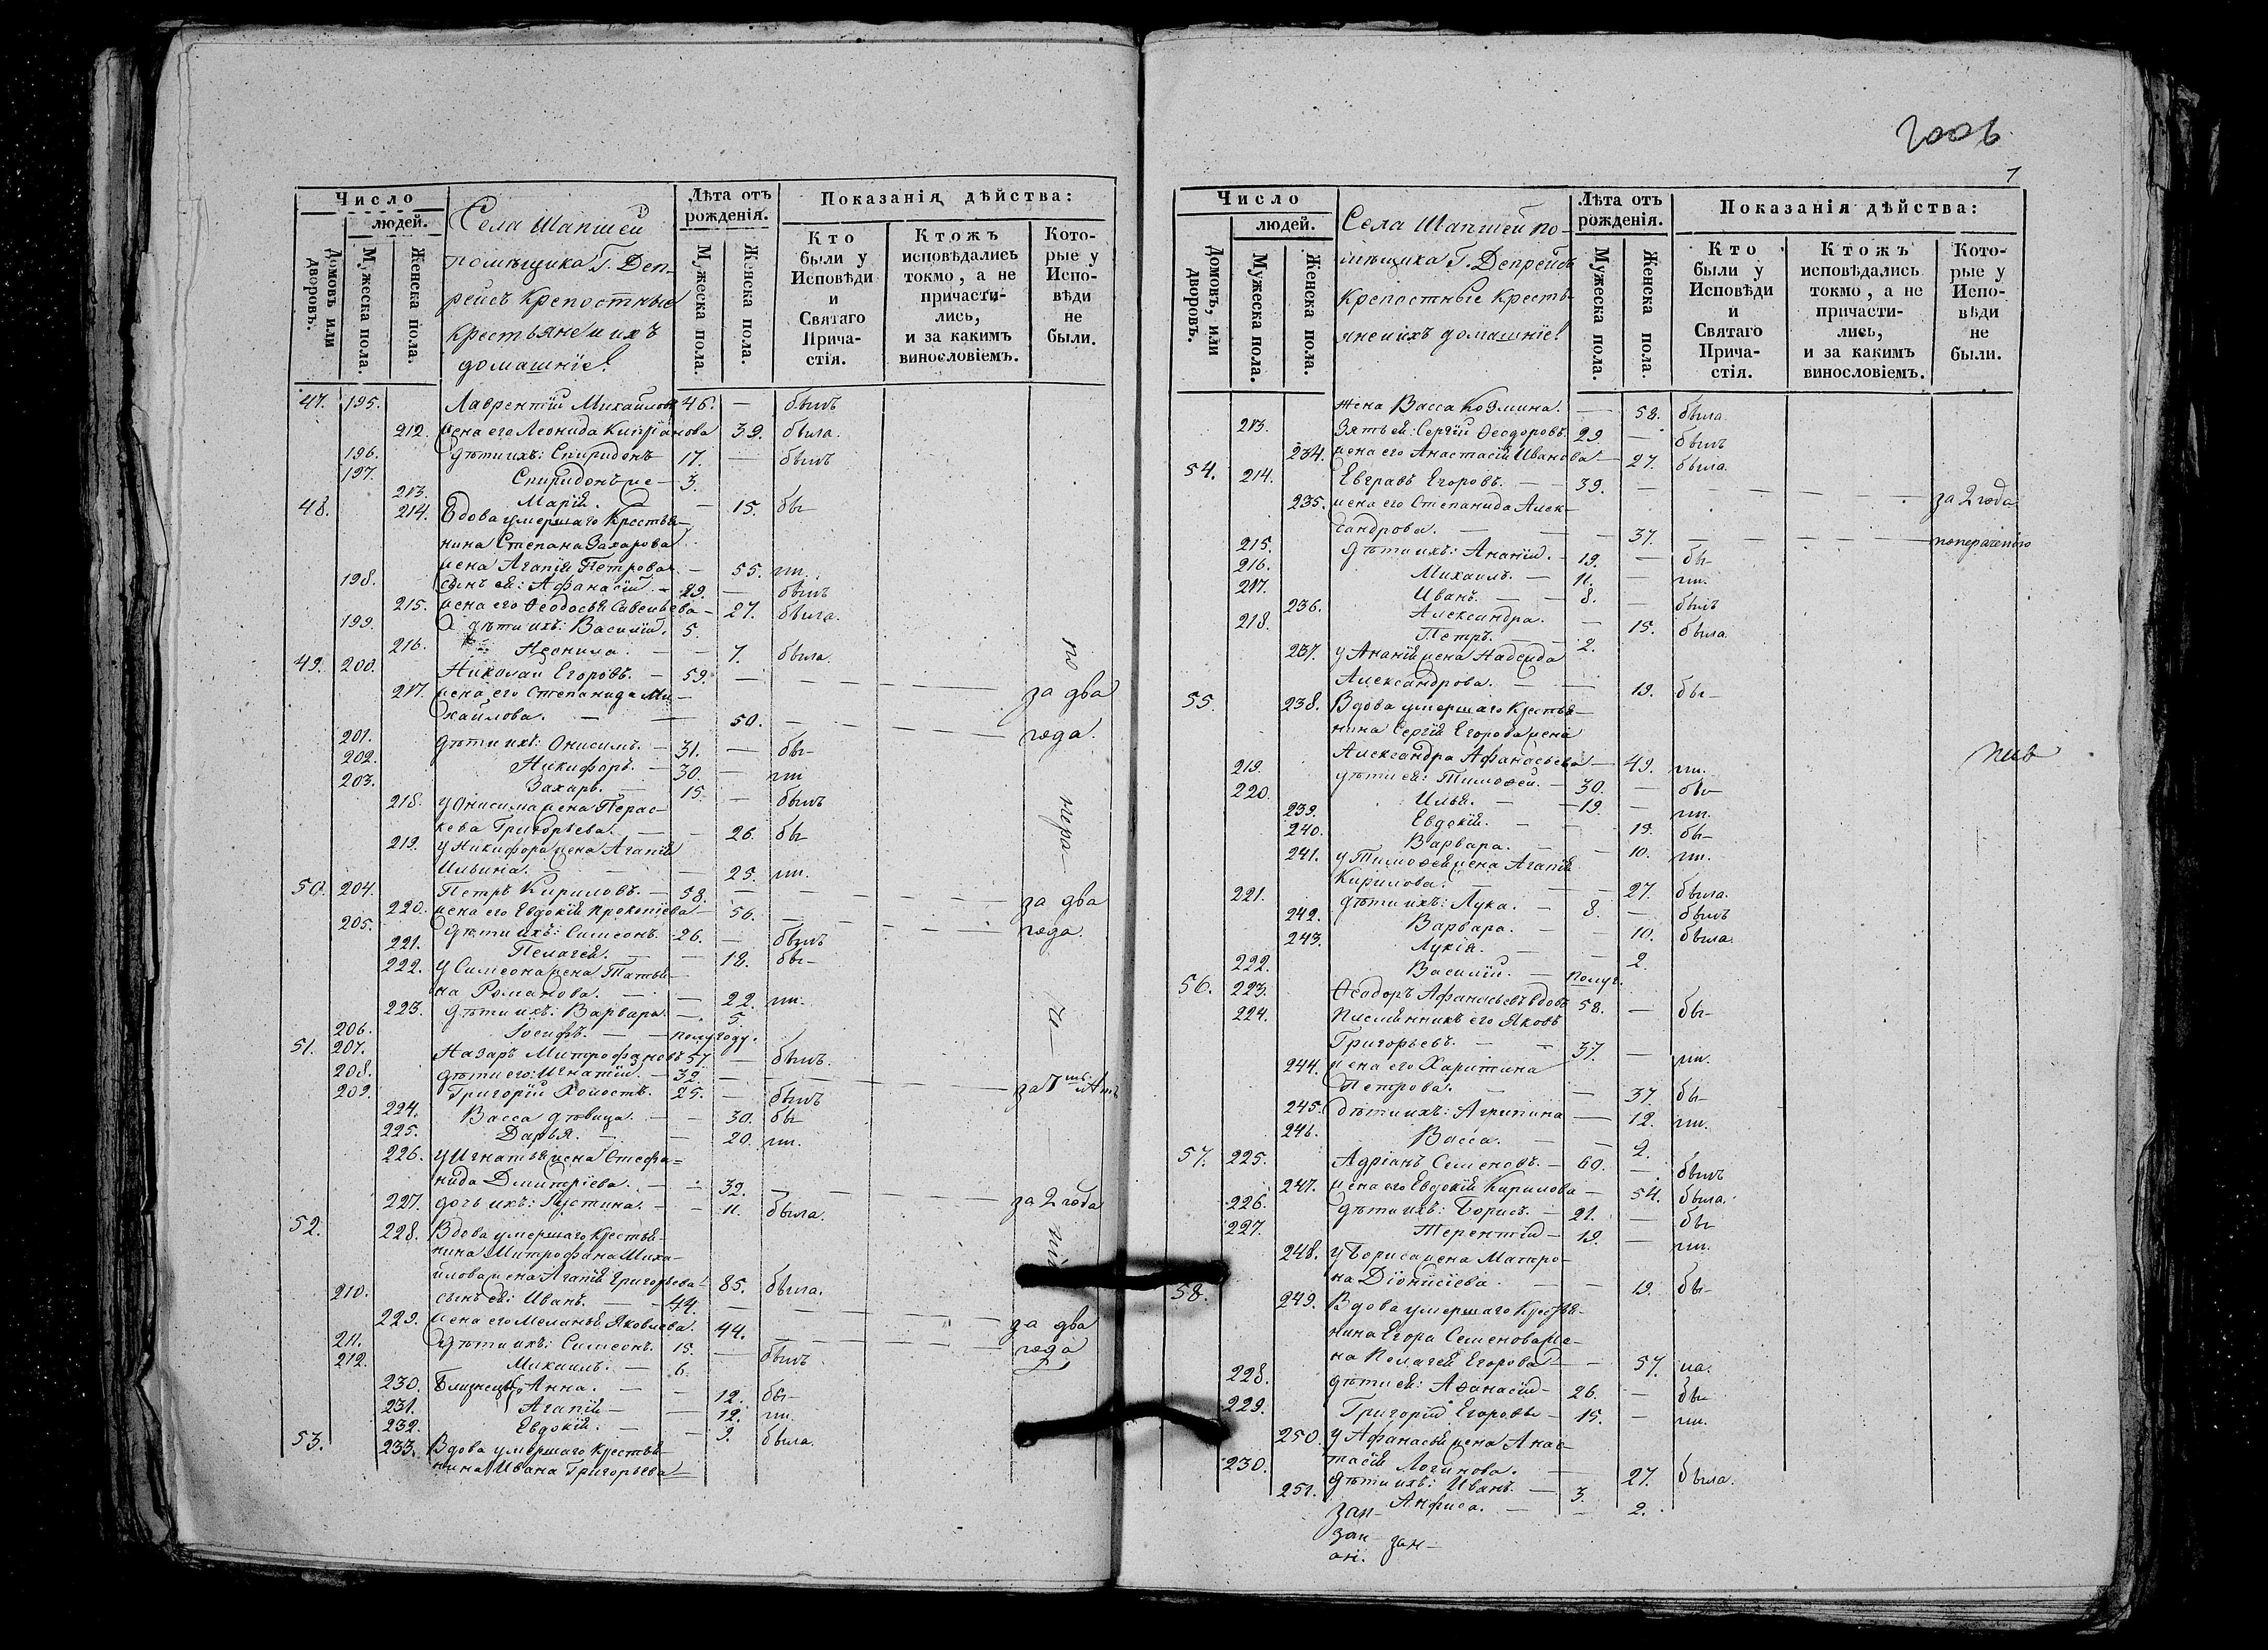 Число
людей.
Домовъ или дворовъ.
Мужеска пола.
Женска пола.
Села Шапшей
помѣщика Г. Деп-
рейсъ крепостные
крестьяне и ихъ
домашніе:
Лѣта отъ рожденія.
Мужеска пола.
Женска пола.
Показанія дѣйства:
Кто были у Исповѣди и Святаго Причастія.
Ктожъ исповѣдались токмо, а не причастились, и за какимъ винословіемъ.
Которые у Исповѣди не были.
47. 195. Лаврентій Михайловъ 46. — былъ
212. жена его Леонида Кипріанова 39. была.
196. дѣти ихъ: Спиридонъ 17. — былъ
197. Спиридонъ же — 3.
213. Марія. — — 15. бы—
48. 214. Вдова умершаго крестья—
нина Степана Захарова
жена Агапія Петрова — 55. ла.
198. сынъ ея: Афанасій — 29. — былъ
215. жена его Ѳеодосья Савельева — 27. была.
199. дѣти ихъ: Василій. 5.
216. Неонила. — — 7. была.
49. 200. Николай Егоровъ. — 59. — за два
217. жена его Степанида Ми—
хайлова. — — 50. — года.
201. дѣти ихъ: Онисимъ. — 31. — бы—
202. Никифоръ. — 30. — ли
203. Захаръ. — 15. — былъ
218. у Онисима жена Парас—
кева Григорьева. — — 26. бы
219. у Никифора жена Агапія
Ильина. — — 25. ли.
50. 204. Петръ Кириловъ. — 58. — за два
220. жена его Евдокія Прокопіева — 56. — года.
205. дѣти ихъ: Симеонъ. 26. — былъ
221. Пелагея. — — 18. бы—
222. у Симеона жена Татья—
на Романова. — — 22. ли.
223. дѣти ихъ: Варвара. — 5.
206. Іосифъ. — полугоду.
51. 207. Назаръ Митрофановъ 57 — былъ.
208. дѣти его: Игнатій. — 32. — за 7 лѣтъ
209. Григорій холостъ. 25. — былъ
224. Васса дѣвица. — — 30. бы
225. Дарья. — — 20. ли.
226. у Игнатья жена Стефа=
нида Дмитріева. — — 32. — за 2 года
227. дочь ихъ: Іустина. — — 11. была.
52. 228. Вдова умершаго крестья—
нина Митрофана Миха—
йлова жена Агапія Григорьева — 85. была.
210. сынъ ея: Иванъ. — 44. — за два
229. жена его Меланья Яковлева. 44. — года
211. дѣти ихъ: Симеонъ. 15. — былъ
212. Михаилъ. — 6.
230. Близнецы, Анна. — — 12. бы—
231. Агапія — — 12. ли.
232. Евдокія. — — 9. была.
53. 233. Вдова умершаго крестья—
нина Ивана Григорьева
по
нера—
7
Число
людей.
Домовъ, или дворовъ.
Мужеска пола.
Женска пола.
Села Шапшей по-
мѣщика Г. Депрейсъ
крепостные кресть-
яне и ихъ домашніе:
Лѣта отъ рожденія.
Мужеска пола.
Женска пола.
Показанія дѣйства:
Кто были у Исповѣди и Святаго Причастія.
Ктожъ исповѣдались токмо, а не причастились, и за какимъ винословіемъ.
Которые у Исповѣди не были.
жена Васса Козмина. — 58. была
213. Зять ея: Сергій Ѳеодоровъ. 29. — былъ
234. жена его Анастасія Иванова — 27. была.
54. 214. Евграфъ Егоровъ. — 39. — за 2 года
235. жена его Степанида Алек—
сандрова. — — 37. — понерадѣнію
215. дѣти ихъ: Ананій. — 19. — бы
216. Михаилъ. — 11. — ли.
217. Иванъ. — 8. — былъ
236. Александра. — 15. была.
218. Петръ. — 2.
237. у Ананія жена Надежда
Александрова. — — 19. бы—
55. 238. Вдова умершаго крестья—
нина Сергія Егорова жена
Александра Афанасьева — 49. ли.
219. дѣти ея: Тимоѳей. — 30. — бы
220. Илья. — 19. — ли.
239. Евдокія. — 19. бы—
240. Варвара. — 10. ли.
241. у Тимоѳея жена Агапія
Кирилова. — — 27. была.
221. дѣти ихъ: Лука. — 8. — былъ
242. Варвара. — — 10. была.
243. Лукія. — — 2.
222. Василій. — полуг.
56. 223. Ѳеодоръ Афанасьевъ вдовъ 58. — бы—
224. Племянникъ его Яковъ
Григорьевъ. — 37. — ли.
244. жена его Харитина
Петрова. — — 37. бы—
245. дѣти ихъ: Агрипина — 12. ли.
246. Васса. — — 2.
57. 225. Адріанъ Семеновъ. — 60. — былъ
247. жена его Евдокія Кирилова — 54. была.
226. дѣти ихъ: Борисъ. — 21. — бы
227. Терентій — 19. — ли.
248. у Бориса жена Матро—
на Діонисіева. — — 19. бы—
58. 249. Вдова умершаго крестья—
нина Егора Семенова же—
на Пелагея Егорова — 57. ла.
228. дѣти ея: Афанасій — 26. — бы
229. Григорій Егоровы — 15. — ли.
250. у Афанасья жена Анас—
тасія Логинова. — 27. была.
230. дѣти ихъ: Иванъ. — 3.
251. Анфиса. — — 2.